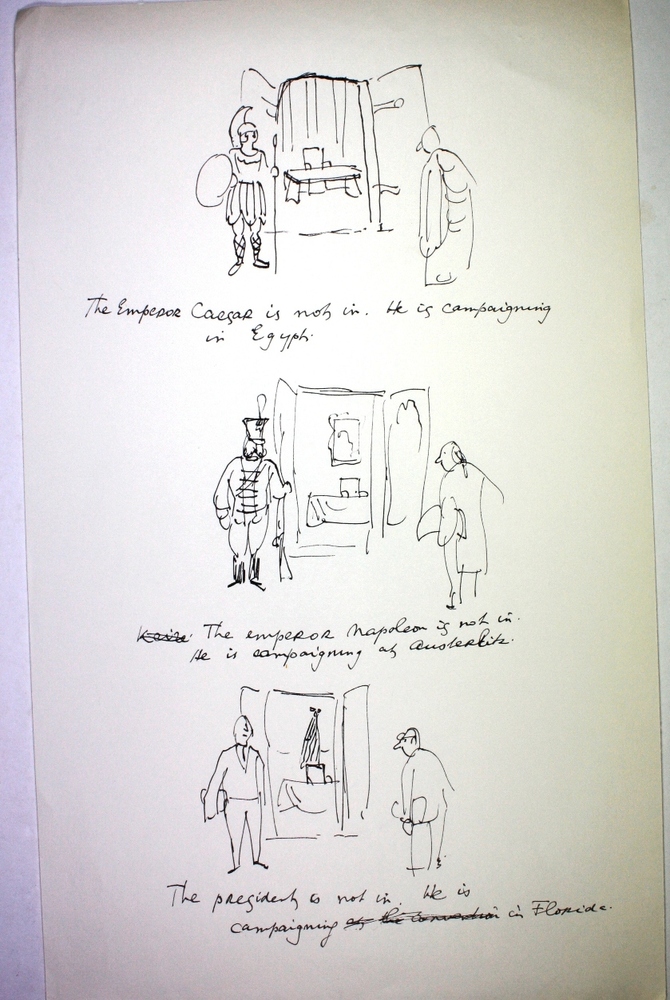 The Emperor Caesar is not in. He is campaigning
in Egypt.
The emperor Napoleon is not in.
He is campaigning at Austerlitz.
The president is not in. He is
campaigning at the convention in Florida.